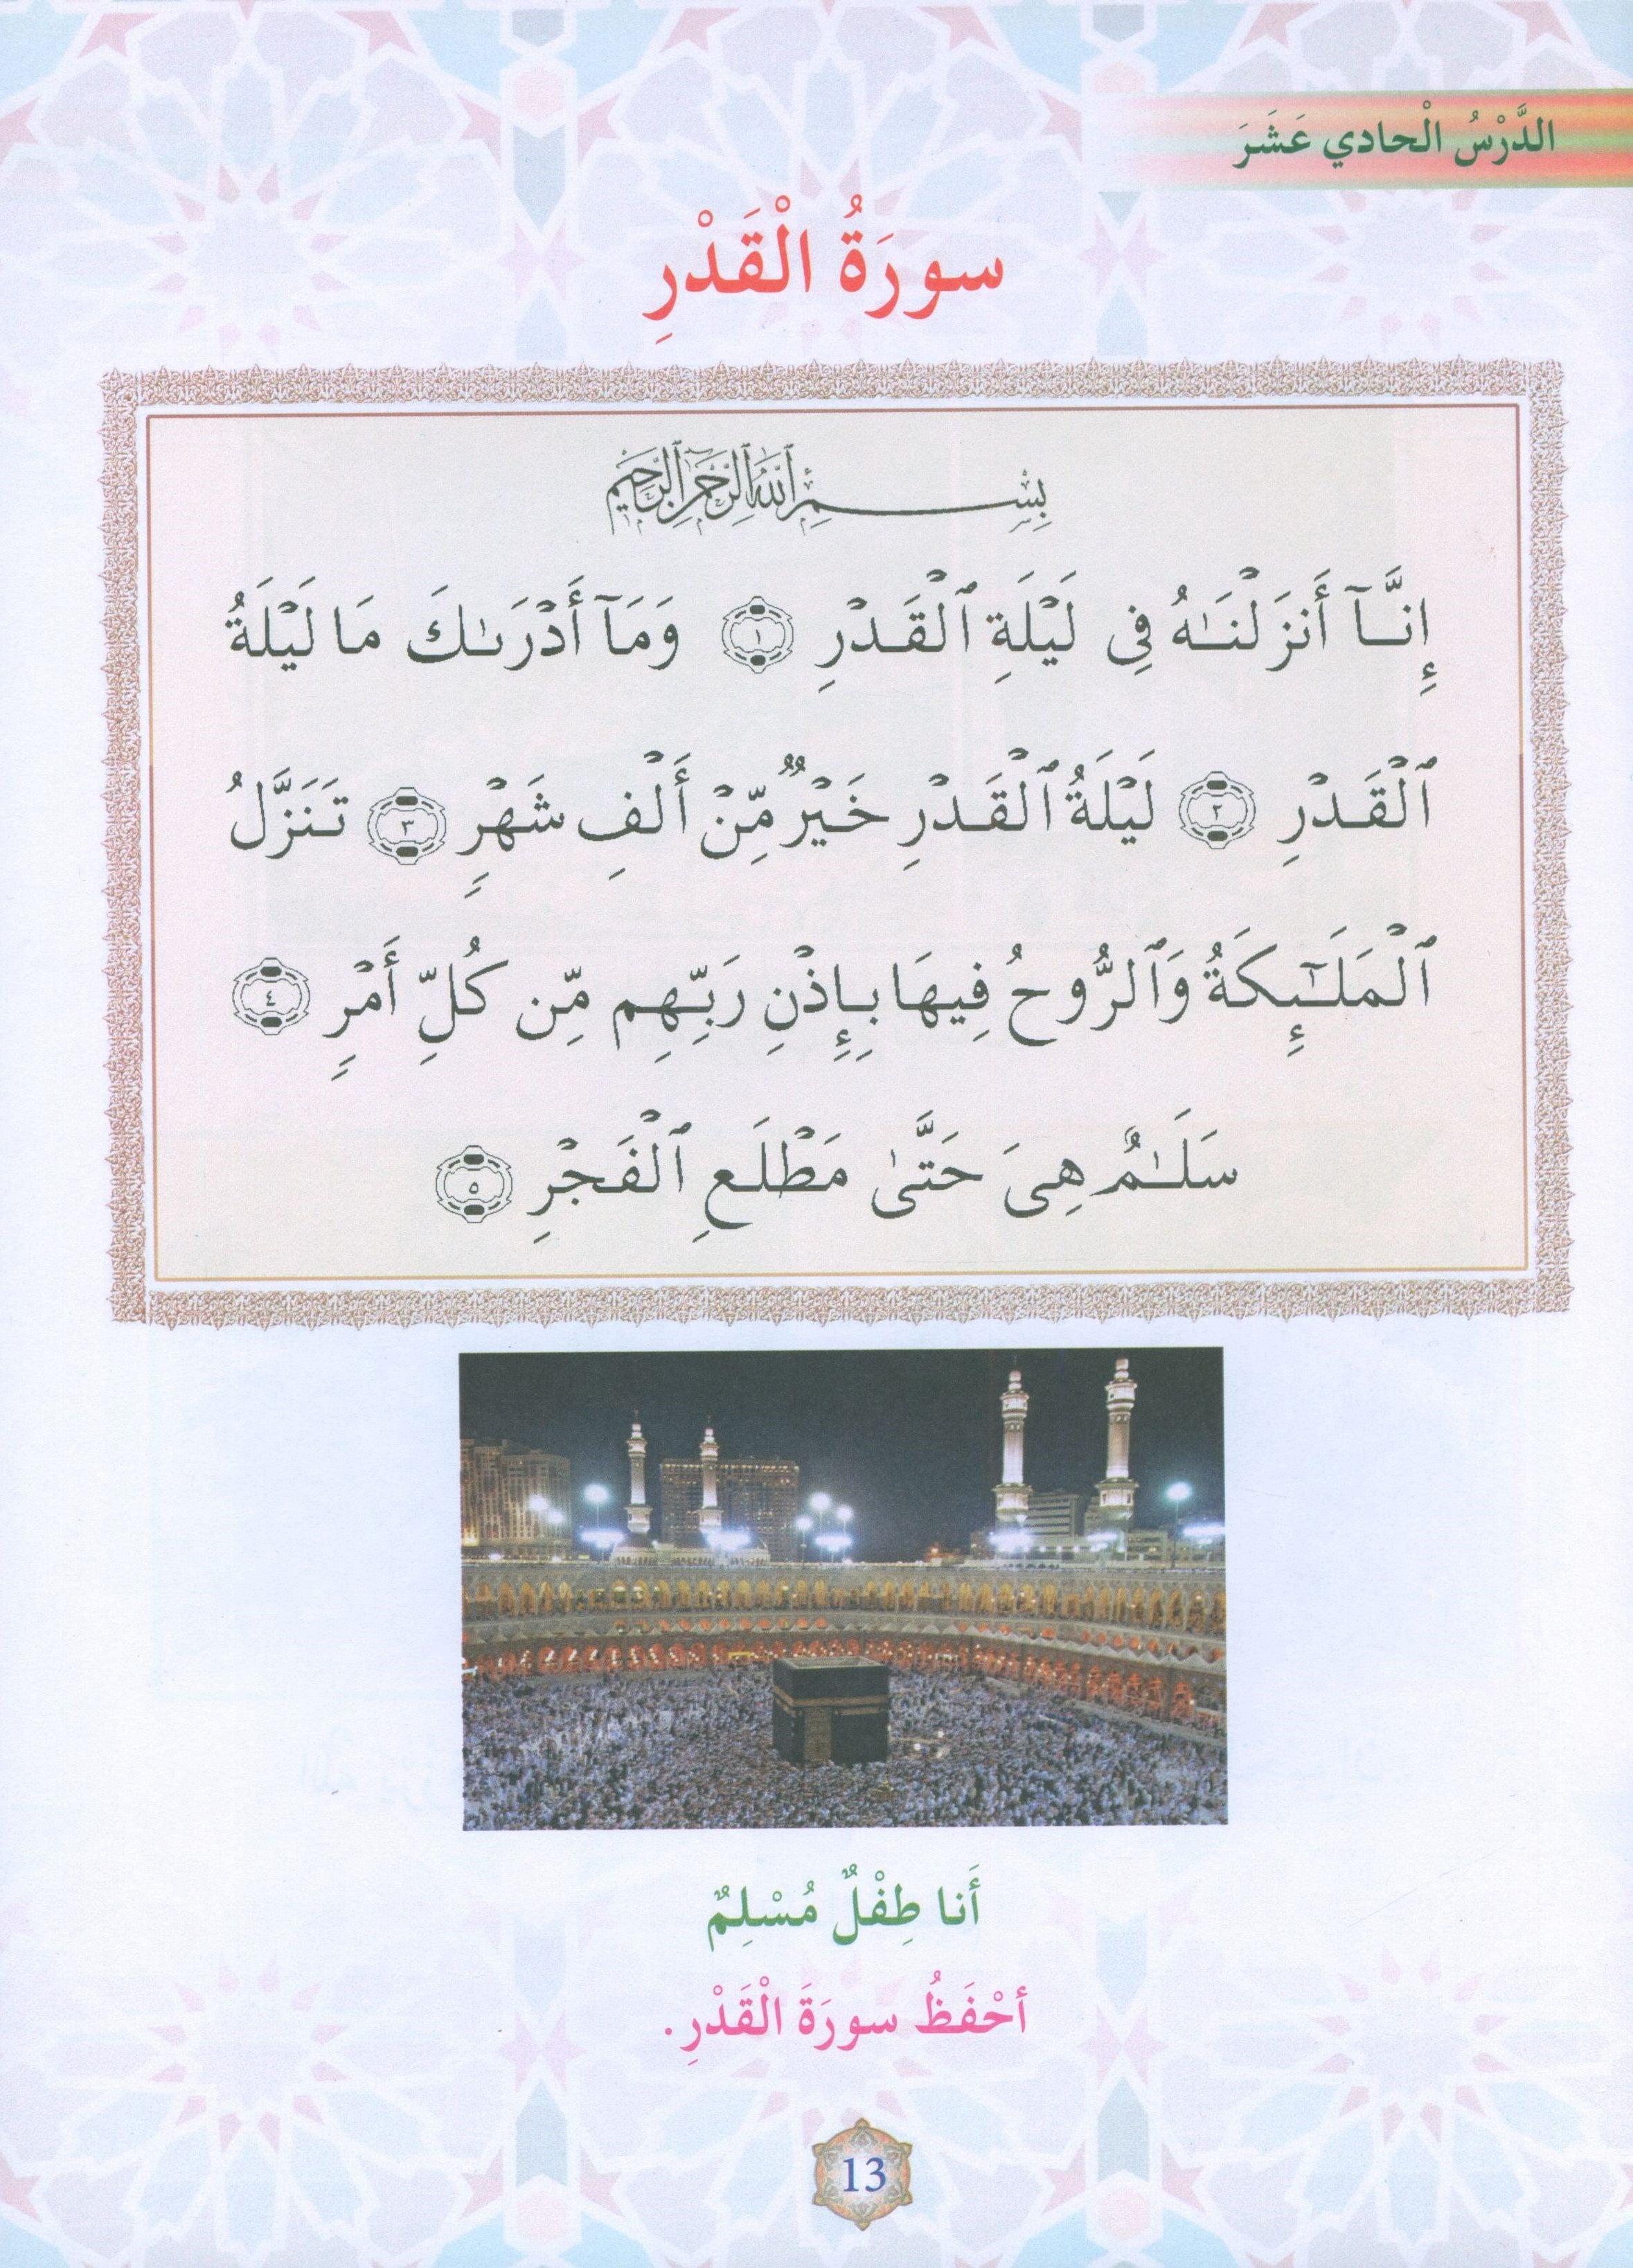 الدَّرْسُ الْحادي عَشَرَ
سورَةُ الْقَدْرِ
بِسْمِ ٱللَّهِ ٱلرَّحْمَٰنِ ٱلرَّحِيمِ
إِنَّآ أَنزَلْنَٰهُ فِى لَيْلَةِ ٱلْقَدْرِ ١ وَمَآ أَدْرَىٰكَ مَا لَيْلَةُ
ٱلْقَدْرِ ٢ لَيْلَةُ ٱلْقَدْرِ خَيْرٌ مِّنْ أَلْفِ شَهْرٍ ٣ تَنَزَّلُ
ٱلْمَلَٰٓئِكَةُ وَٱلرُّوحُ فِيهَا بِإِذْنِ رَبِّهِم مِّن كُلِّ أَمْرٍ ٤
سَلَٰمٌ هِىَ حَتَّىٰ مَطْلَعِ ٱلْفَجْرِ ٥
أَنا طِفْلٌ مُسْلِمٌ
أحْفَظُ سورَةَ الْقَدْرِ.
13